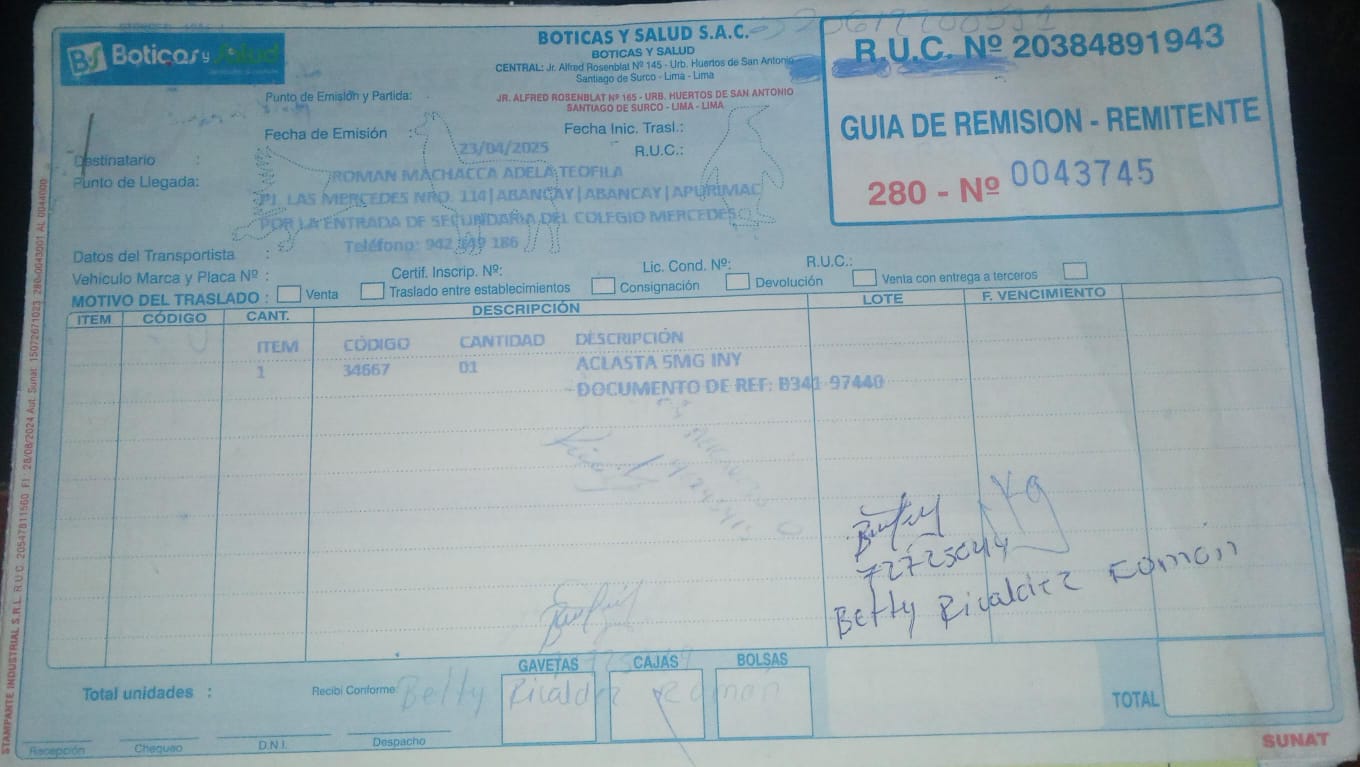 Boticas y Salud
BOTICAS Y SALUD S.A.C.
BOTICAS Y SALUD
CENTRAL: Jr. Alfred Rosenblat Nº 145 - Urb. Huertos de San Antonio
Santiago de Surco - Lima - Lima
R.U.C. Nº 20384891943
GUIA DE REMISION - REMITENTE
280 - Nº 0043745
Punto de Emisión y Partida:
JR. ALFRED ROSENBLAT Nº 165 - URB. HUERTOS DE SAN ANTONIO
SANTIAGO DE SURCO - LIMA - LIMA
Fecha de Emisión : 23/04/2025
Fecha Inic. Trasl.:
Destinatario : ROMAN MACHACCA ADELA TEOFILA
R.U.C.:
Punto de Llegada: PJ. LAS MERCEDES NRO. 114|ABANCAY|ABANCAY|APURIMAC
POR LA ENTRADA DE SECUNDARIA DEL COLEGIO MERCEDES
Teléfono: 942 186
Datos del Transportista :
Vehículo Marca y Placa Nº :
Certif. Inscrip. Nº:
Lic. Cond. Nº:
R.U.C.:
MOTIVO DEL TRASLADO : Venta Traslado entre establecimientos Consignación Devolución Venta con entrega a terceros
ITEM CÓDIGO CANT. DESCRIPCIÓN LOTE F. VENCIMIENTO
ITEM CÓDIGO CANTIDAD DESCRIPCIÓN
1 34667 01 ACLASTA 5MG INY
DOCUMENTO DE REF: B341-97440
72725044
Betty Ricaldez Roman
GAVETAS CAJAS BOLSAS
Total unidades :
Recibí Conforme: Betty Ricaldez Roman
TOTAL
Recepción Chequeo D.N.I. Despacho
SUNAT
STAMPANTE INDUSTRIAL S.R.L. R.U.C. 20547811560 F.I.: 28/08/2024 Aut. Sunat: 15072671023 280-0043001 AL 0044000